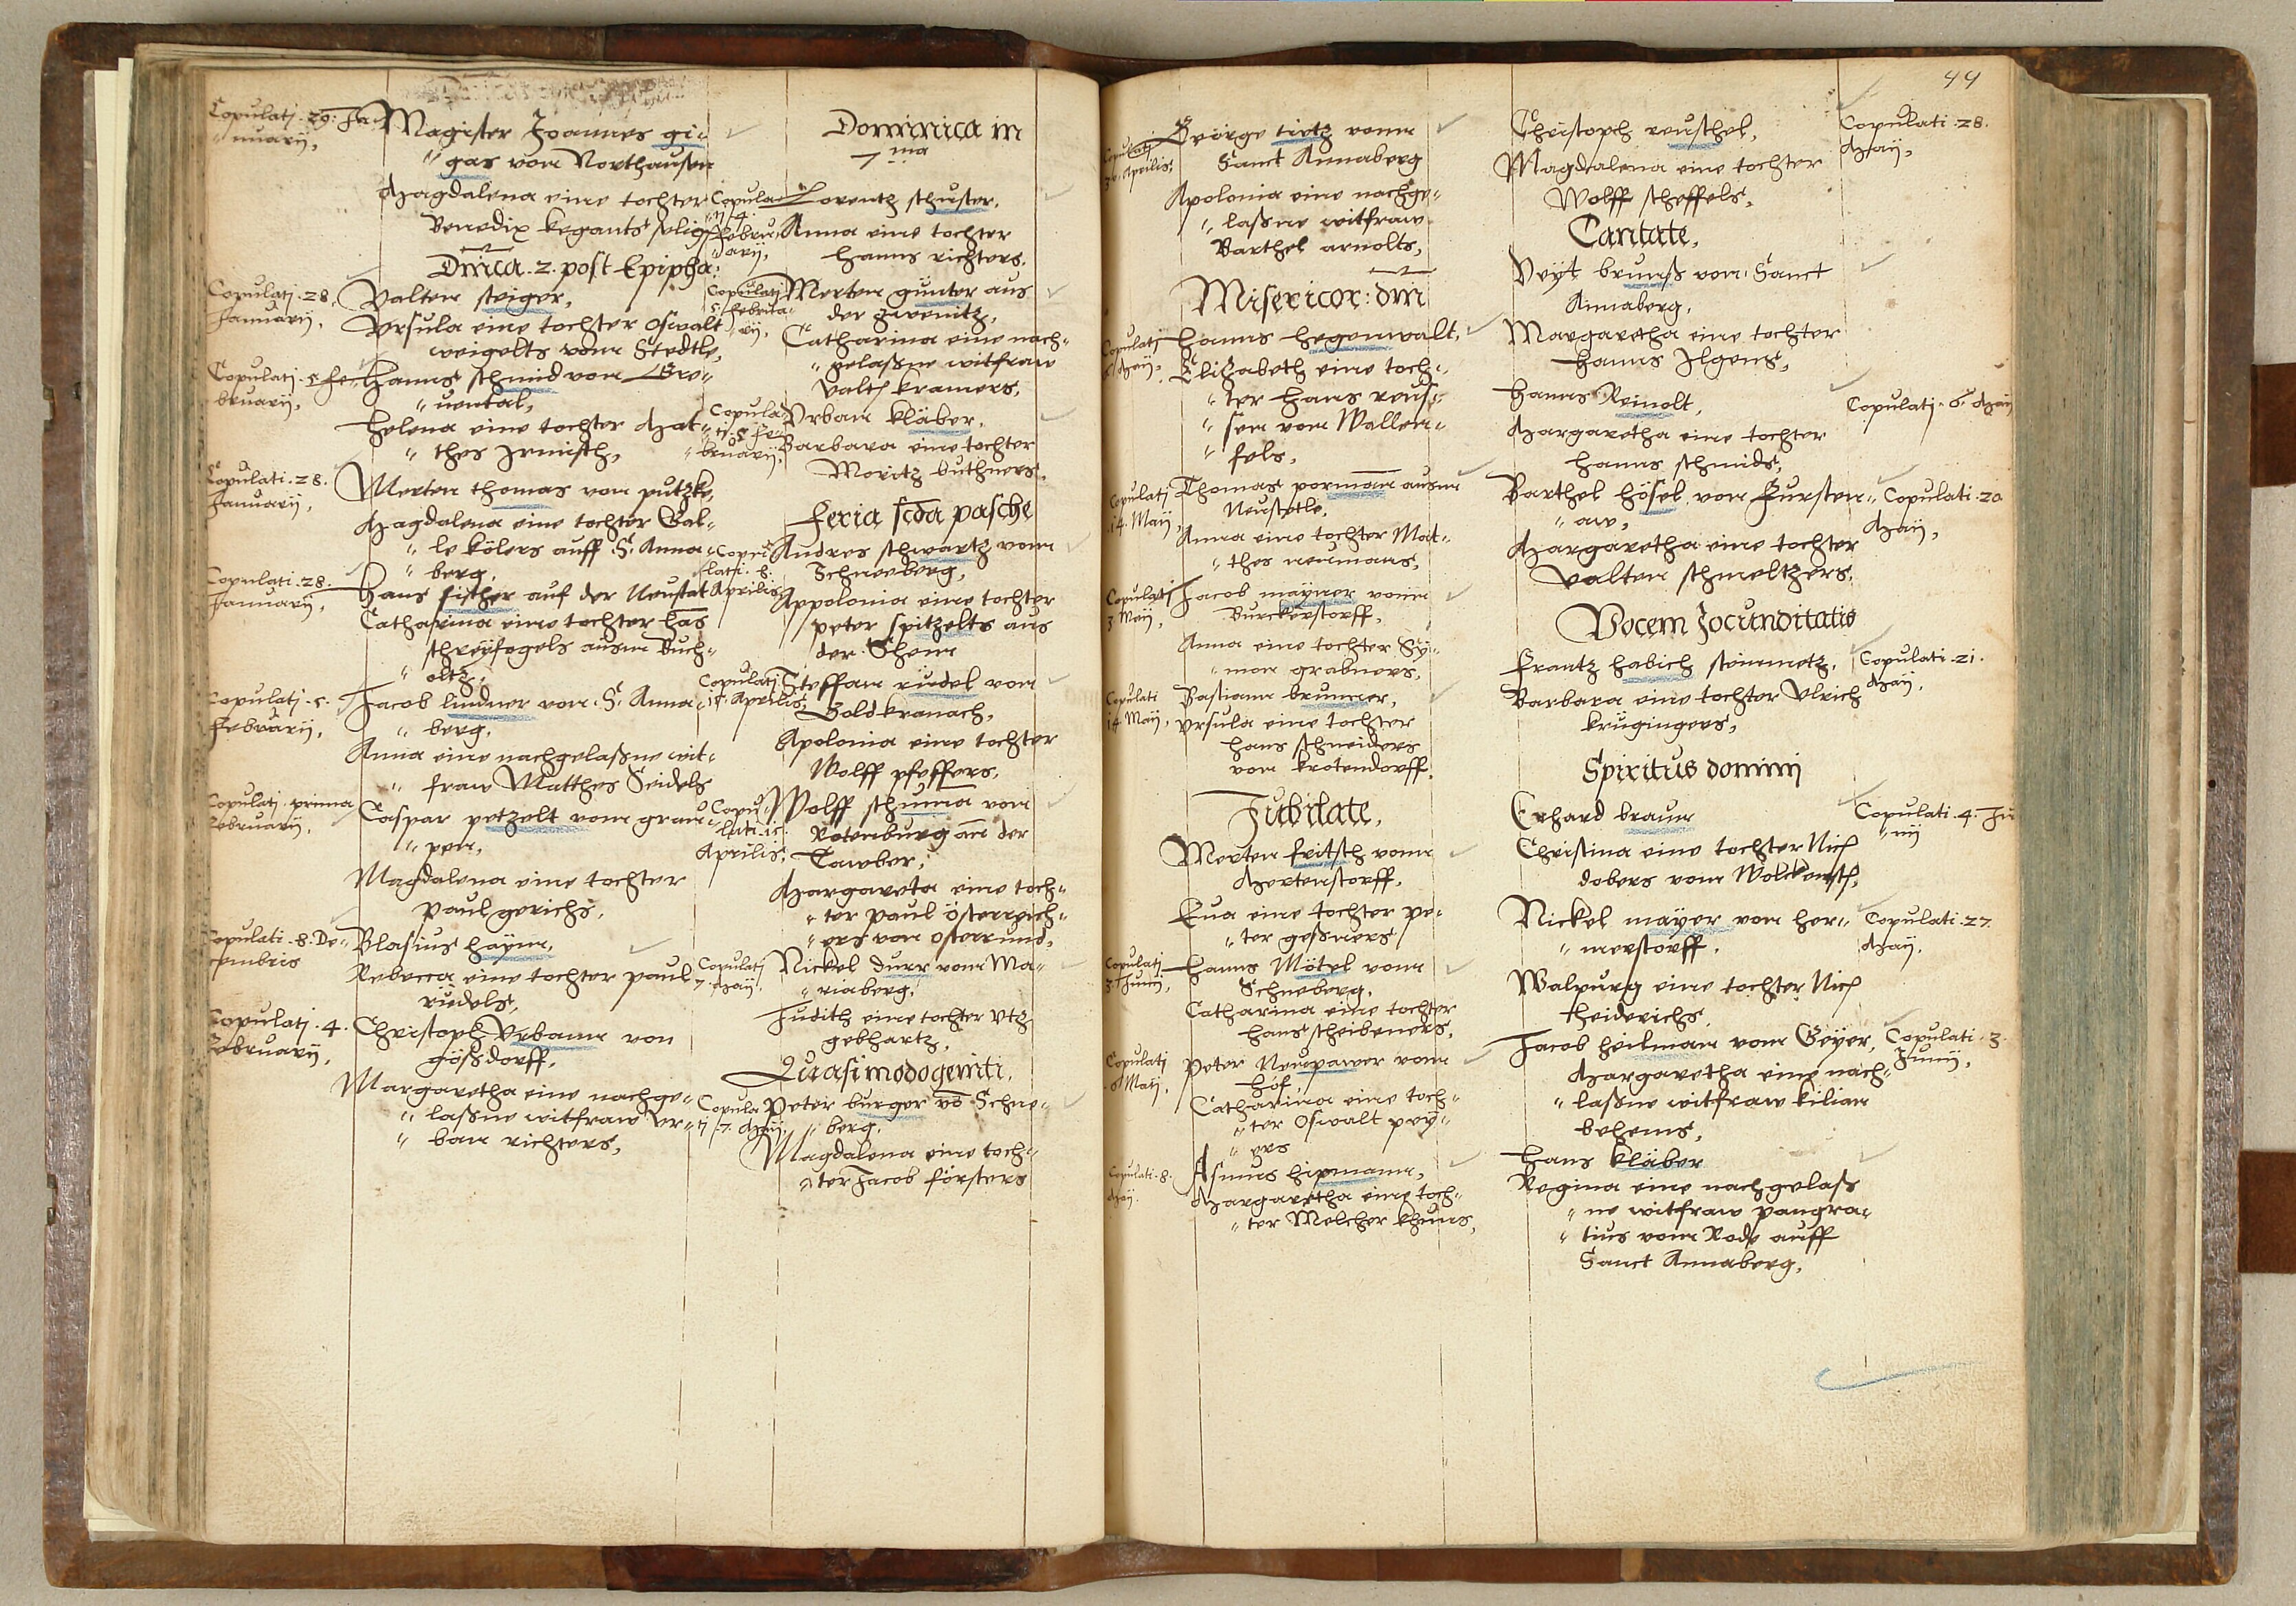 Copulatj. 29. Ja-
"nuarij,
Magister Joannes gi-
"gas von Northausen
Magdalena eine tochter
Benedix kegants selig,
Dnica. 2. post Epipha:
Copulatj. 28.
Januarij,
Valten steiger,
Vrsula eine tochter Oswalt
weigelts vom Stedtle,
Copulatj. 5 fe-
bruarij,
Hanns schmid von Gre-
"uental,
Helena eine tochter Mat-
"thes Irmisch,
Copulati. 28.
Januarij,
Merten thomas von putzke,
Magdalena eine tochter Gal-
"le kölers auff S. Anna-
"berg.
Copulati. 28.
Januarij,
Hans fischer auf der Neustat
Catharina eine tochter has
schreyfogels ausm Buch-
"oltz,
Copulatj. 5.
Februarij,
Jacob lindner von S. Anna-
"berg.
Anna eine nachgelaßne wit-
"fraw Matthes Seidels
Copulatj. prima
Februarij,
Caspar petzelt vom grau-
"pen,
Magdalena eine tochter
Paul gerichs,
Copulati. 8. De-
cembris
Blasius haym,
Rebecca eine tochter paul
riedels,
Copulatj. 4.
Februarij,
Christoph Vrbann von
gößdorff,
Margaretha eine nachge-
"laßne witfraw Vr-
"ban richters,
Dominica in
7ma
Copula-
"tj 4.
Febru-
"arij,
Lorentz schuster,
Anna eine tochter
Hanns richters.
Copulatj
5 Februa-
"rij,
Merten günter aus
der zwenitz,
Catharina eine nach-
"gelaßne witfraw
Valten kramers,
Copula-
"tj. 5 fe-
"bruarij,
Vrban kläber,
Barbara eine tochter
Moritz buthners.
Feria scda pasche
Copu-
lati. 8.
Aprilis,
Andres schwartz vom
Schneeberg,
Appolonia eine tochter
peter spitzelts aus
der Shem
Copulatj
15. Aprilis,
Steffan riedel von
Goldkranach,
Apolonia eine tochter
Wolff pfeffers,
Copu-
lati. 15.
Aprilis,
Wolff schuma von
Rotenburg an der
Tawber,
Margareta eine toch-
"ter paul österreich-
"ers von osterrund,
Copulatj
7. Maij.
Nickel durr vom Ma-
"riaberg,
Judith eine tochter Vtz
gebhartz,
Quasimodogeniti,
Copula
tj 7. Maij,
Peter burger vo Schne-
"berg,
Magdalena eine toch-
"ter Jacob försters
44
Copulatj
30. Aprilis,
George tietz vonn
Sanct Annaberg
Apolonia eine nachge-
"laßne witfraw
Barthel arnolts,
Misericor: dni
Copulatj
Maij,
Hanns hegenwalt,
Elizabeth eine toch-
"ter hans reus-
"sen von Wallen-
"fels,
Copulatj
14. Maij,
Thomas pormann ausm
Neustetle,
Anna eine tochter Mat-
"thes neumans,
Copulatj
3 Maij,
Jacob mayner vonn
Burckerstorff,
Anna eine tochter Sy-
"mon grabners,
Copulati
14 Maij,
Bastiann brunner,
Vrsula eine tochter
hans schneiders
von krotendorff.
Jubilate,
Merten fritsch vonn
Mertenstorff,
Eua eine tochter pe-
"ter geßners
Copulatj
3. Junij,
Hanns Mötel vonn
Schneberg,
Catharina eine tochter
hans scheibeners,
Copulatj
6 Maij,
Peter Neupawer vom
hof,
Catharina eine toch-
"ter Oswalt pey-
"ers
Copulati. 8.
Maij.
Asmus hipmann,
Margaretha eine toch-
"ter Melcher khuns,
Christoph reuschel,
Copulati. 28.
Maij,
Magdalena eine tochter
Wolff scheffels,
Cantate,
Veyt brunß von Sanct
Annaberg,
Margaretha eine tochter
Hanns Ilgens,
Hanns Reinolt,
Copulatj. 6. Maij
Margaretha eine tochter
hanns schmids,
Barthel hösel von Fursten-
"aw,
Copulati. 20
Maij,
Margaretha eine tochter
Valten schmeltzers,
Vocem Jocunditatis
Frantz habich steinmetz,
Copulati. 21.
Maij,
Barbara eine tochter Vlrich
krugingers,
Spiritus domini
Erhard braun
Copulati. 4. Ju
"nij
Christina eine tochter Nic
dobers vom Wolckenst,
Nickel mayer von her-
"merstorff.
Copulati. 27
Maij.
Walpurg eine tochter Nic
heiderichs,
Jacob heilman vom Geyer,
Copulati. 3
Junij,
Margaretha eine nach-
"laßne witfraw kilian
behems,
Hans kläber
Regina eine nachgelaß
"ne witfraw pangra-
"tius vom Rode auff
Sanct Annaberg,